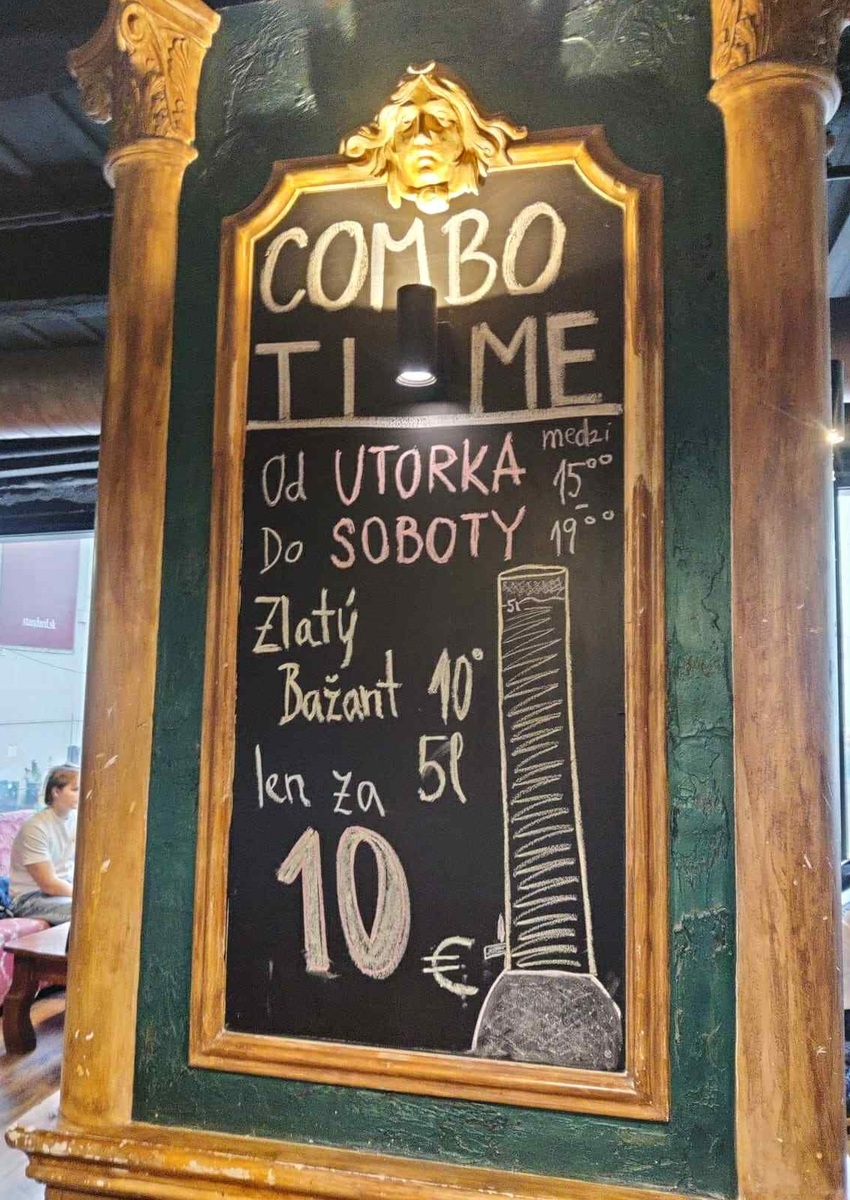 COMBO
TIME
Od UTORKA medzi
Do SOBOTY 15°° - 19°°
Zlatý
Bažant 10°
5l
len za
10 €
5l
standard.sk